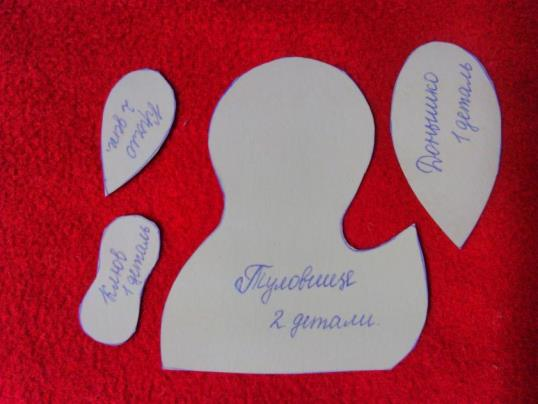 Крыло
2 дет.
Клюв
1 деталь
Туловище
2 детали.
Донышко
1 деталь